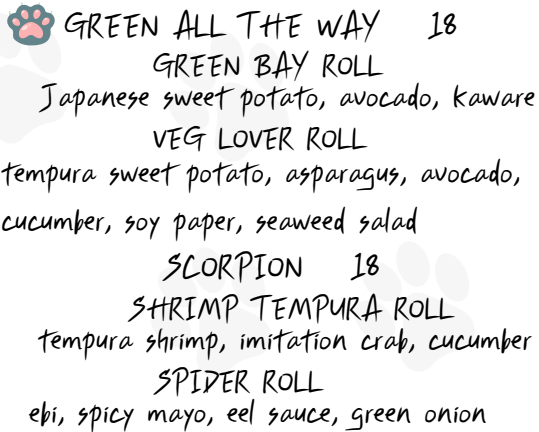 GREEN ALL THE WAY 18
GREEN BAY ROLL
Japanese sweet potato, avocado, kaware
VEG LOVER ROLL
tempura sweet potato, asparagus, avocado,
cucumber, soy paper, seaweed salad
SCORPION 18
SHRIMP TEMPURA ROLL
tempura shrimp, imitation crab, cucumber
SPIDER ROLL
ebi, spicy mayo, eel sauce, green onion